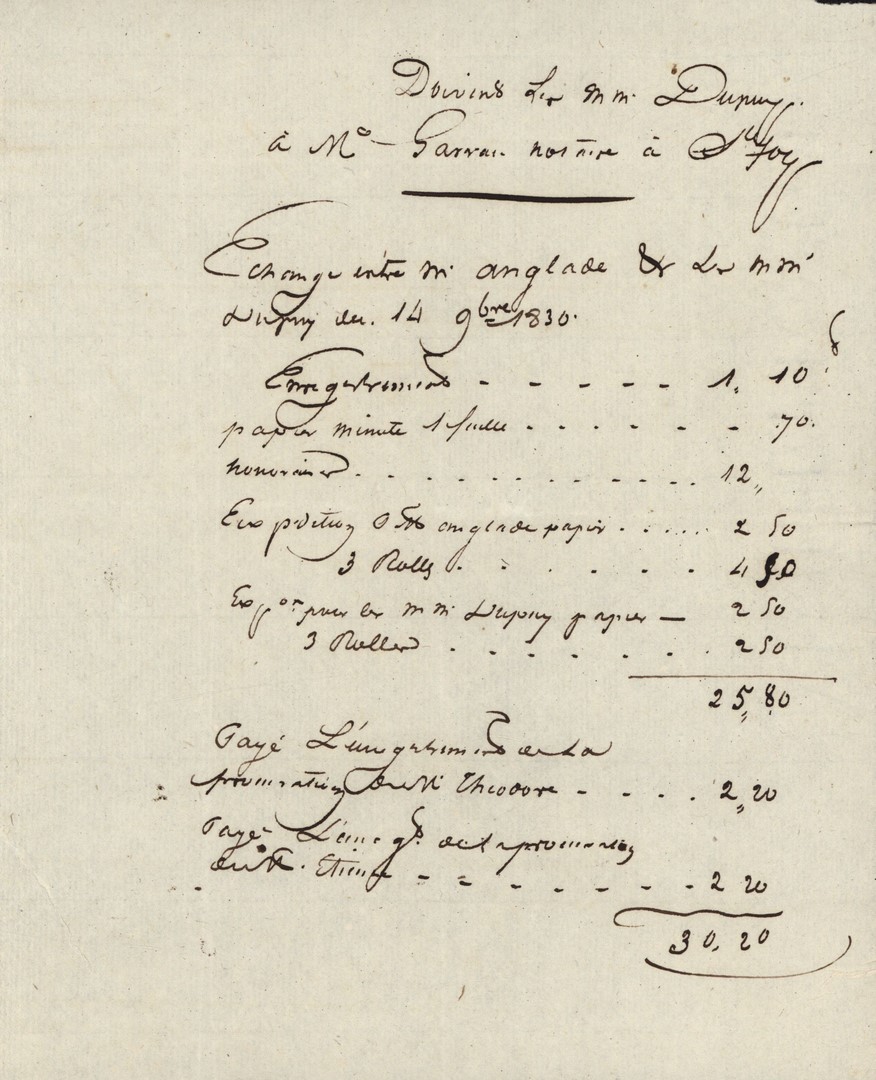 Doivent Les mm. Dupuy.
à Me Garrau notaire à Ste foy
Echange entre mr anglade & Les mmrs
Dupuy du 14 9bre 1830.
Enregistrement - - - - - 1, 10 c
papier minute 1 feuille - - - - - - 70.
honoraires - - - - - - - - - 12 „
Expédition Mr anglade papier . . . . . 2 50
3 Rolles . . . . . . 4 50
Expon pour les mm. Dupuy papier — 2 50
3 Rolles . . . . . . . 2 50
25, 80
Payé L'enregistrement de La
procuration de Mr Théodore - - - - 2, 20
Payé L'enregt. de La procuration
de Mr. Etienne - - - - - - - 2 20
30, 20